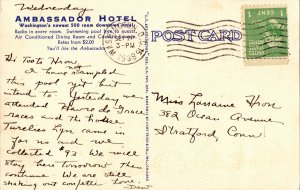 Wednesday
AMBASSADOR HOTEL
Washington's newest 500 room downtown hotel
Radio in every room. Swimming pool free to guests.
Air Conditioned Dining Room and
Rates from $2.00
You'll like the Ambassador
POST CARD
3-PM
1¢
Hi Toots Hron
I have sampled
this pool yet but
intend to. Yesterday we
attended Havre de Grace
races and the horse
came in
for us and we
collected $92. We will
stay here tomorrow then
continue. We are still
shaking out confetti Love
Miss Lorraine Hron
382 Ocean Avenue
Stratford, Conn.